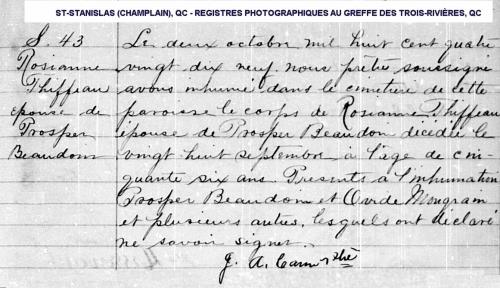 ST-STANISLAS (CHAMPLAIN), QC - REGISTRES PHOTOGRAPHIQUES AU GREFFE DES TROIS-RIVIÈRES, QC
S 43
Rosianne
Thiffeau
épouse de
Prosper
Beaudoin
Le deux octobre mil huit cent quatre
vingt dix neuf, nous prêtre soussigné
avons inhumé dans le cimetière de cette
paroisse le corps de Rosianne Thiffeau
épouse de Prosper Beaudoin décédée le
vingt huit septembre à l'age de cin-
quante six ans. Presents à l'inhumation
Prosper Beaudoin et Ovide Mongrain
et plusieurs autres, lesquels ont déclaré
ne savoir signer.
J. A. ptre